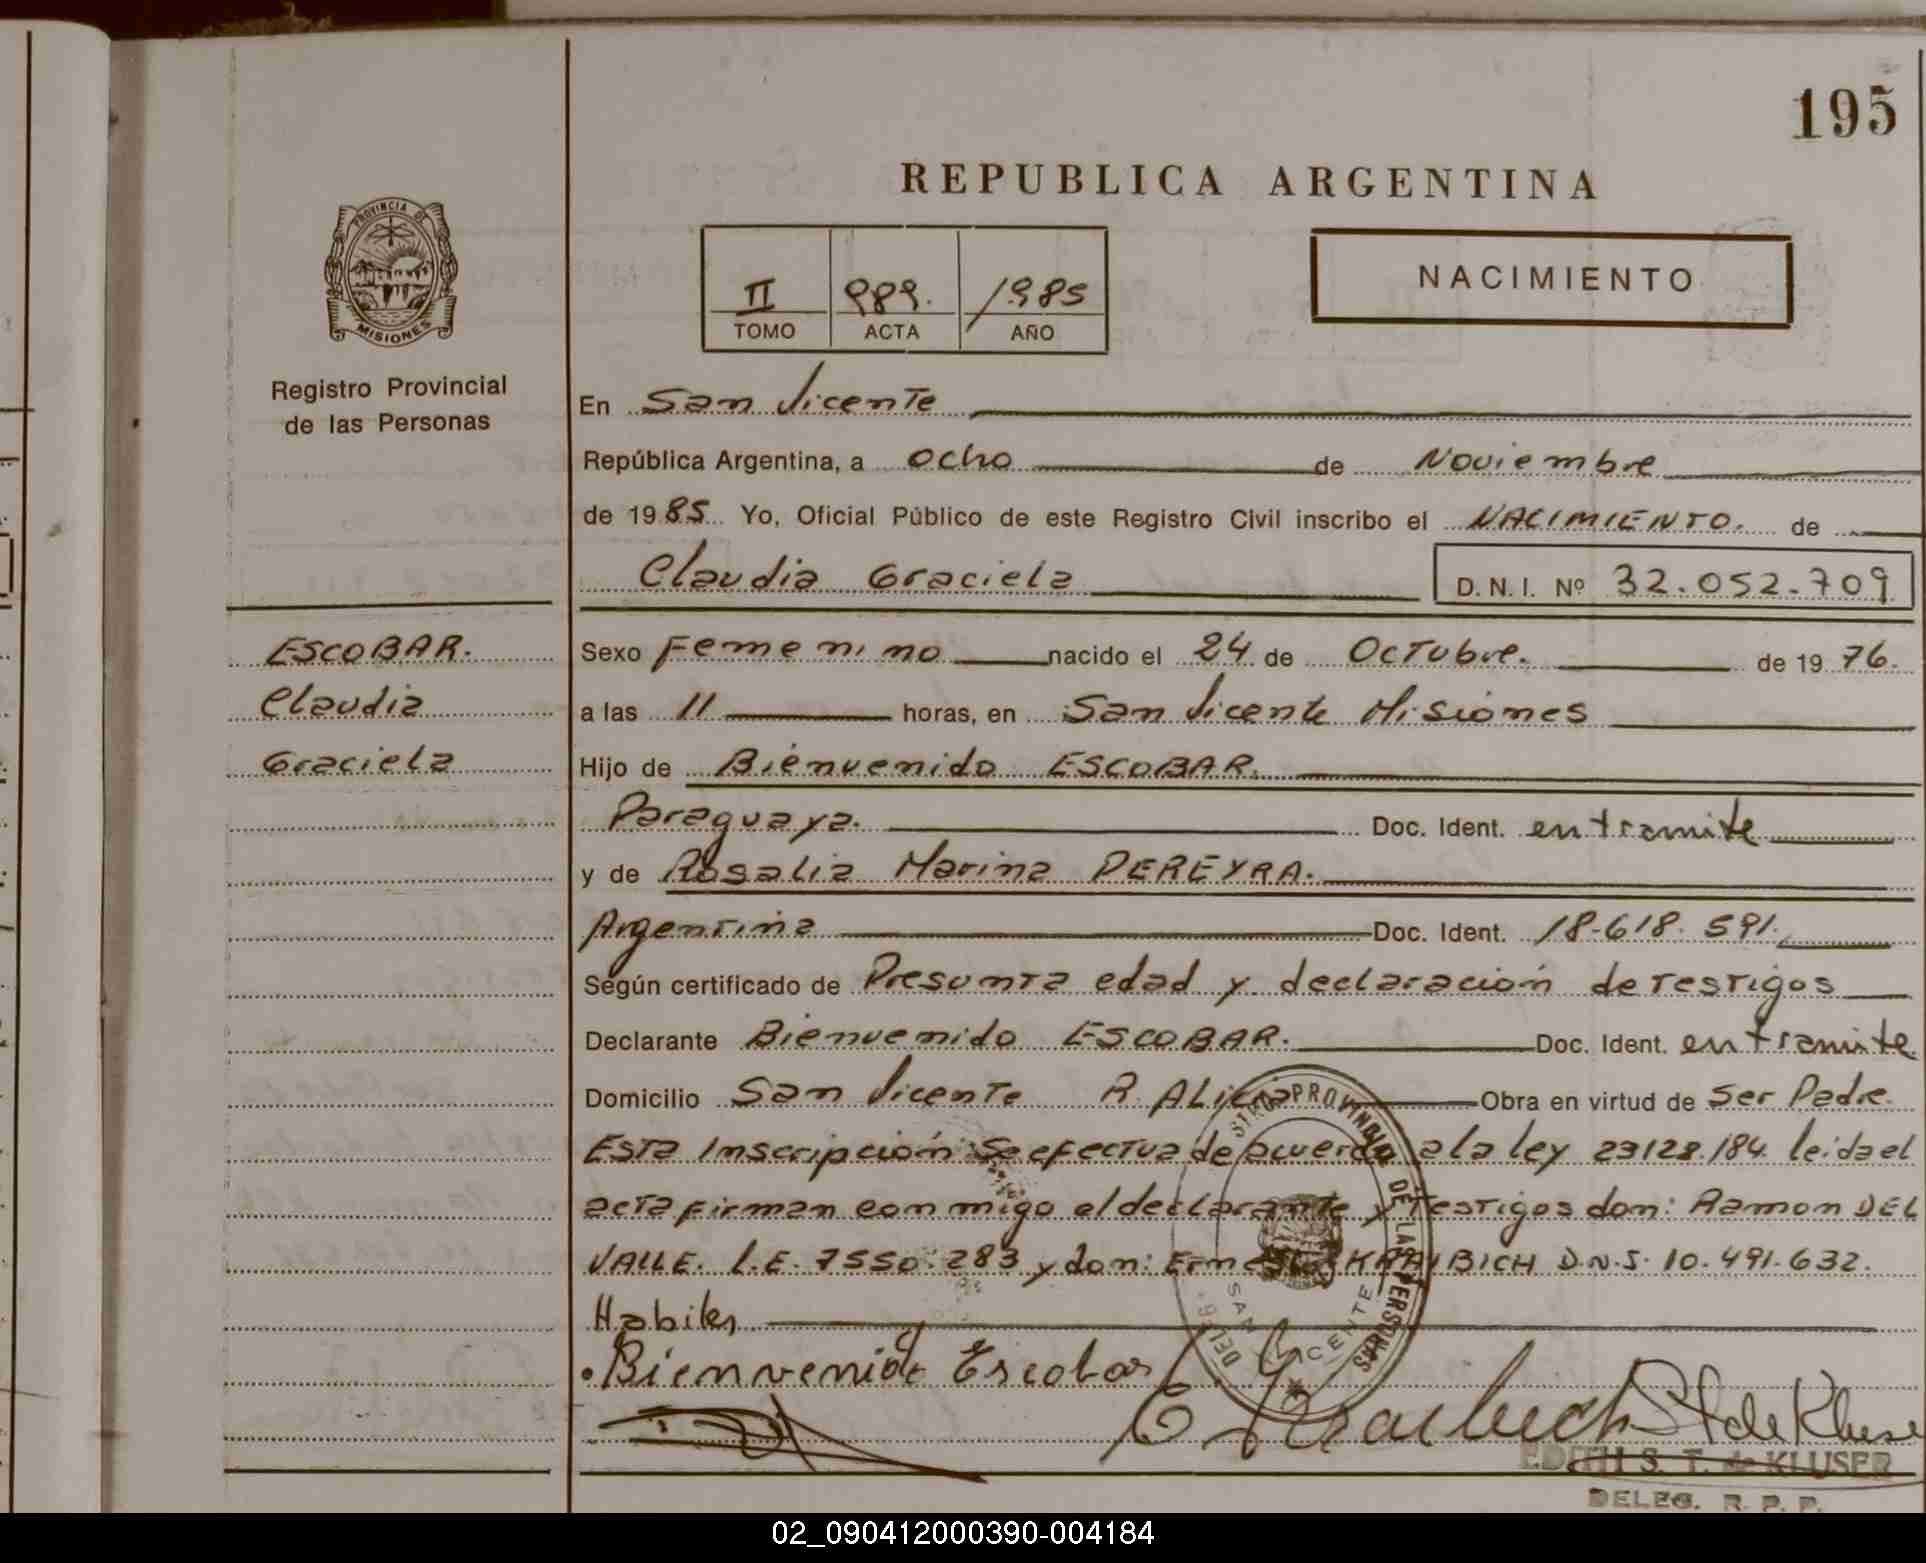 195
REPUBLICA ARGENTINA
PROVINCIA DE
MISIONES
Registro Provincial
de las Personas
II 989. 1985
TOMO ACTA AÑO
NACIMIENTO
En San Vicente
República Argentina, a ocho de Noviembre
de 1985 Yo, Oficial Público de este Registro Civil inscribo el NACIMIENTO. de
Claudia Graciela D.N.I. Nº 32.052.709
ESCOBAR.
Claudia
Graciela
Sexo Femenino nacido el 24 de Octubre. de 1976.
a las 11 horas, en San Vicente Misiones
Hijo de Bienvenido ESCOBAR.
Paraguaya. Doc. Ident. en tramite
y de Rosalia Marina PEREYRA.
Argentina Doc. Ident. 18.618.591.
Según certificado de Presunta edad y declaración de testigos
Declarante Bienvenido ESCOBAR. Doc. Ident. en tramite
Domicilio San Vicente R. Alicia Obra en virtud de ser Padre.
Esta Inscripción se efectua de acuerdo a la ley 23128/84. leida el
acta firman con migo el declarante y testigos don: Ramon DEL
VALLE. L.E. 7550.283 y don: Ernesto D.N.I. 10.491.632.
Habiles
Bienvenido Escobar
S T de Kluser
EDITH S. T. de KLUSER
DELEG. R. P. P.
02_090412000390-004184